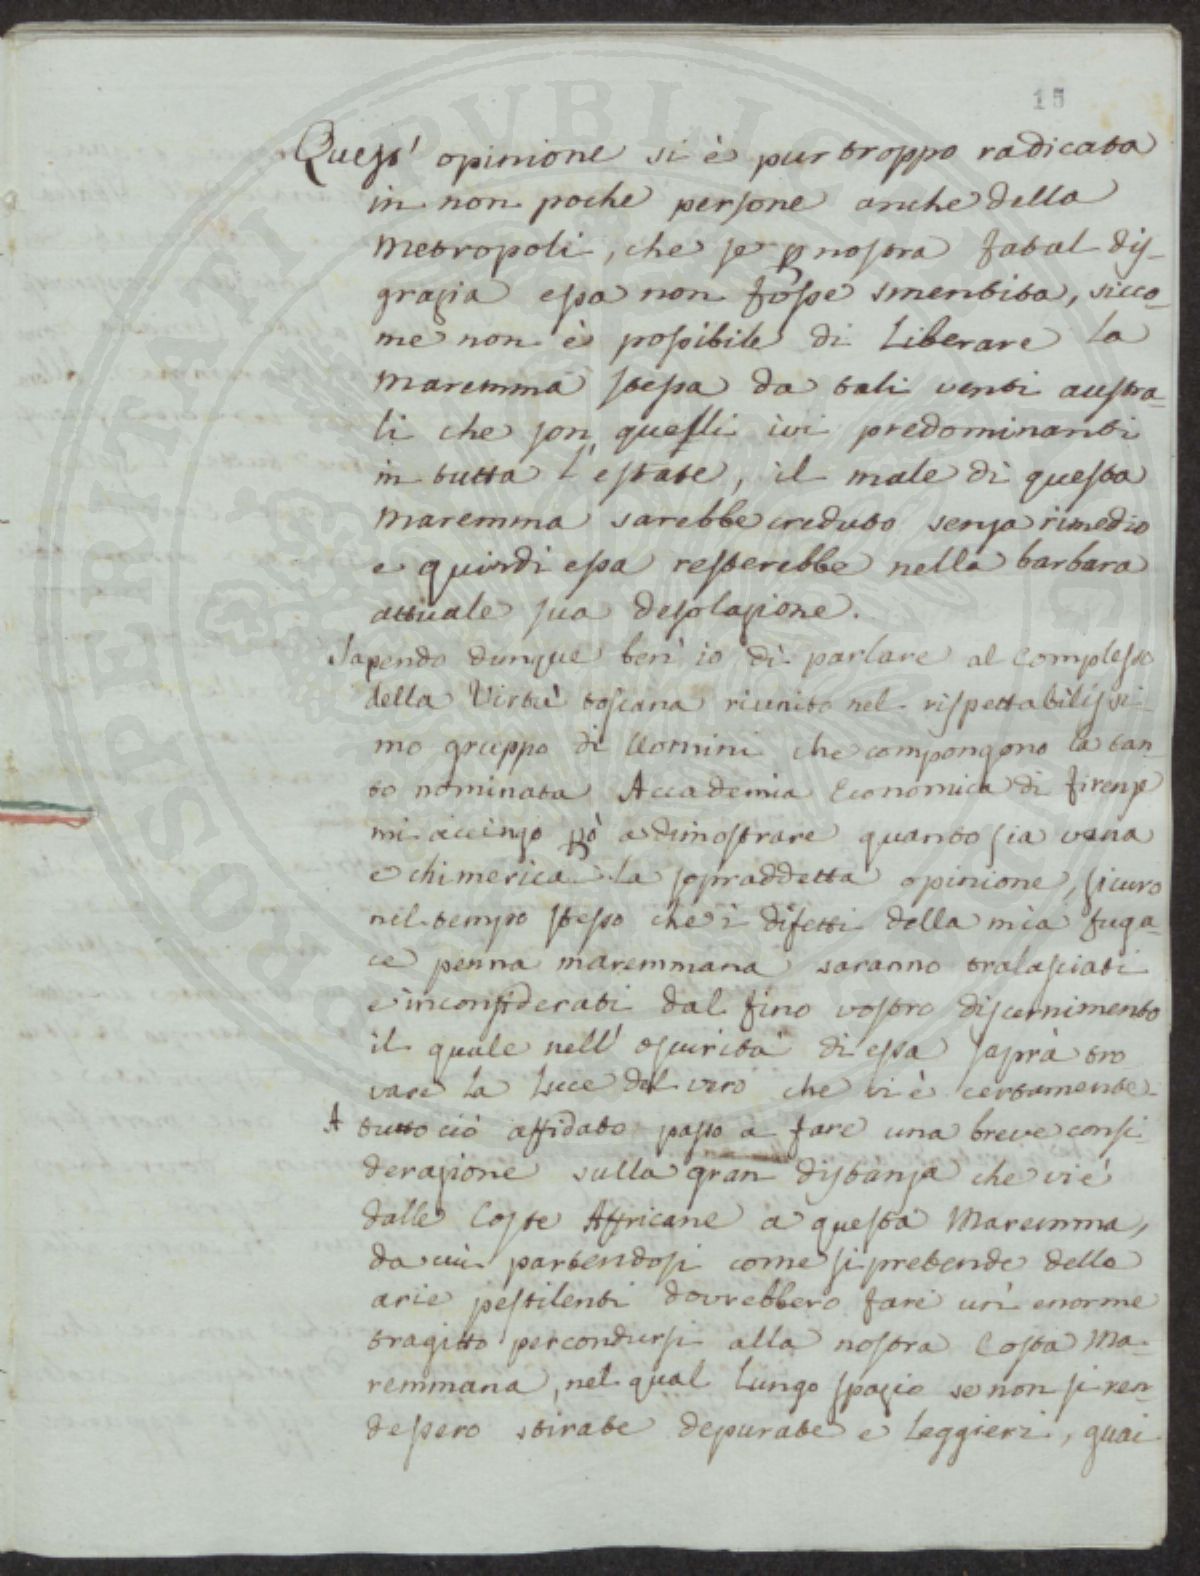 15
Quest' opinione si è pur troppo radicata
in non poche persone anche della
Metropoli, che se p nostra fatal dis-
grazia essa non fosse smentita, sicco-
me non è possibile di liberare la
Maremma stessa da tali venti austra-
li che son quelli ivi predominanti
in tutta l'estate, il male di questa
Maremma sarebbe creduto senza rimedio
e quindi essa resterebbe nella barbara
attuale sua desolazione.
Sapendo dunque ben' io di parlare al Complesso
della Virtù toscana riunito nel rispettabilissi-
mo gruppo di Uomini che compongono la tan
to nominata Accademia Economica di Firenze
mi accingo pò a dimostrare quanto sia vana
e chimerica la sopraddetta opinione, sicuro
nel tempo stesso che i difetti della mia fuga-
ce penna maremmana saranno tralasciati
e inconsiderati dal fino vostro discernimento
il quale nell' oscurità di essa saprà tro
vare la Luce del vero che vi è certamente.
A tutto ciò affidato passo a fare una breve consi-
derazione sulla gran distanza che vi è
dalle Coste Affricane a questa Maremma,
da cui partendosi come si pretende delle
arie pestilenti dovrebbero fare un' enorme
tragitto per condursi alla nostra Costa Ma-
remmana, nel qual lungo spazio se non si ren-
dessero stirate depurate e leggieri, quai
PROSPERITATI PUBLICAE